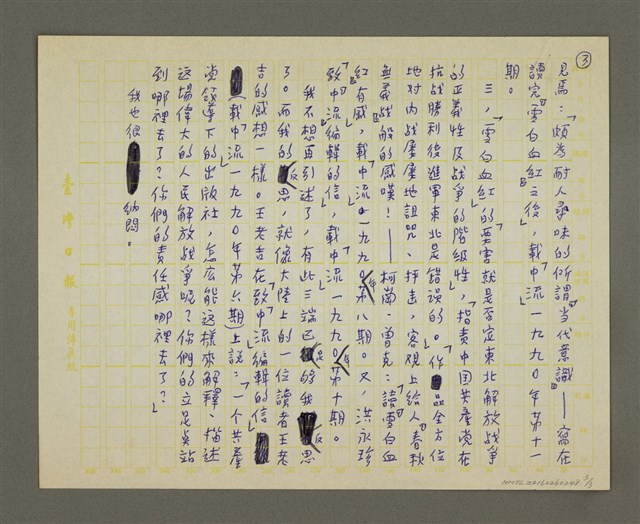 ③
見焉：「頗為耐人尋味的所謂『當代意識』——寫在
讀完『雪白血紅』之後，載『中流』一九九〇年第十一
期。
三，『雪白血紅』的要害就是否定東北解放战爭
的正義性及战爭的階級性，指責中国共產党在
抗战勝利後進軍東北是錯誤的。作品全方位
地对内战屡屡地詛咒、抨击，客观上給人『春秋
無義战』般的感嘆！——柯崗、曾克：『讀雪白血
紅有感』，載『中流』一九九〇年第八期。又，洪永珍
『致中流編輯的信』，載『中流』一九九〇年第十期。
我不想再引述了，有此三端已足够我反思
了。而我的反思，就像大陸上的一位讀者王老
吉的感想一樣。王老吉在『致中流編輯的信』
（載『中流』一九九〇年第六期）上説：「一个共產
党領導下的出版社，怎広能这樣來解釋、描述
这場偉大的人民解放战爭呢？你們的立足點站
到哪裡去了？你們的責任感哪裡去了？」
我也很納悶。
臺灣日報
專用稿紙
NMTL20160260248 3/3